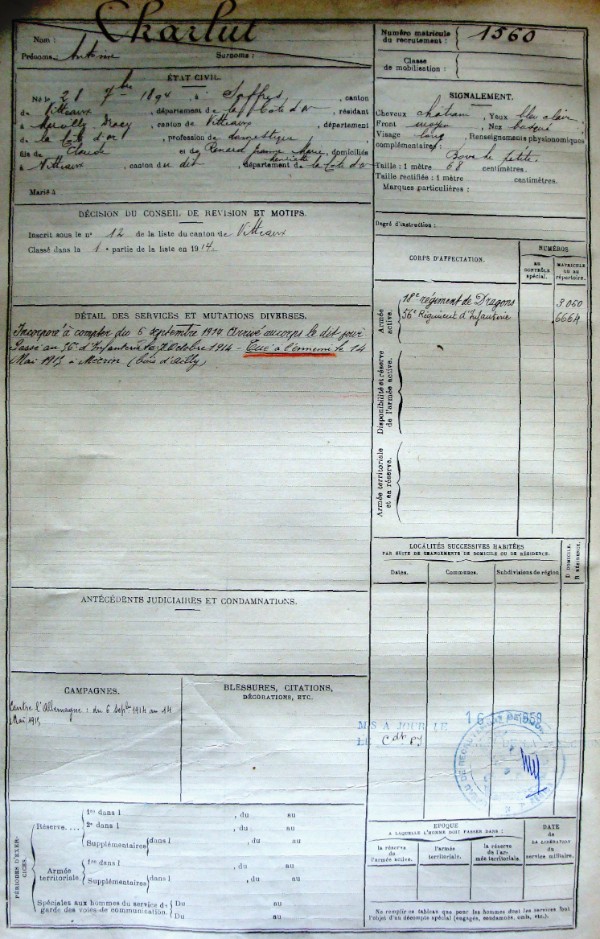 Nom : Charlut
Prénoms : Antoine Surnoms :
Numéro matricule
du recrutement : 1560
Classe
de mobilisation :
ÉTAT CIVIL.
Né le 28 7bre 1894, à , canton
de Vitteaux, département de la Côte d'or, résidant
à , canton de Vitteaux, département
de la Côte d'or, profession de domestique
fils de Claude et de Renard Marie, domiciliés
à Vitteaux, canton du dit, département de la Côte d'or
Marié à
SIGNALEMENT.
Cheveux châtain, Yeux bleu clair
Front moyen, Nez busqué
Visage long, Renseignements physionomiques
complémentaires : petite
Taille : 1 mètre 68 centimètres.
Taille rectifiée : 1 mètre centimètres.
Marques particulières :
Degré d'instruction :
DÉCISION DU CONSEIL DE REVISION ET MOTIFS.
Inscrit sous le n° 12 de la liste du canton de Vitteaux
Classé dans la 1e partie de la liste en 1914.
CORPS D'AFFECTATION.
NUMÉROS.
AU CONTRÔLE spécial.
MATRICULE OU AU répertoire.
Armée active.
18e régiment de Dragons 3060
56e Régiment d'Infanterie 6664
Disponibilité et réserve de l'armée active.
Armée territoriale et sa réserve.
DÉTAIL DES SERVICES ET MUTATIONS DIVERSES.
Incorporé à compter du 6 septembre 1914 Arrivé au corps le dit jour
Passé au 56e d'Infanterie le Octobre 1914 - Tué à l'ennemi le 14
Mai 1915 à (bois d'ailly)
LOCALITÉS SUCCESSIVES HABITÉES
PAR SUITE DE CHANGEMENTS DE DOMICILE OU DE RÉSIDENCE.
Dates.
Communes.
Subdivisions de région.
D DOMICILE.
R RÉSIDENCE.
ANTÉCÉDENTS JUDICIAIRES ET CONDAMNATIONS.
CAMPAGNES.
Contre l'Allemagne : du 6 Septbre 1914 au 14
Mai 1915
BLESSURES, CITATIONS,
DÉCORATIONS, ETC.
MIS A JOUR LE
PÉRIODES D'EXERCICES.
Réserve....
1re dans l , du au
2e dans l , du au
Supplémentaires dans l , du au
Armée territoriale.
1re dans l , du au
Supplémentaires dans l , du au
Spéciales aux hommes du service de
garde des voies de communication.
Du au
Du au
ÉPOQUE
A LAQUELLE L'HOMME DOIT PASSER DANS :
la réserve
de l'armée active.
l'armée
territoriale.
la réserve
de l'armée territoriale.
DATE
DE LA LIBÉRATION
du
service militaire.
Ne remplir ce tableau que pour les hommes dont les services font
l'objet d'un décompte spécial (engagés, condamnés, omis, etc.).